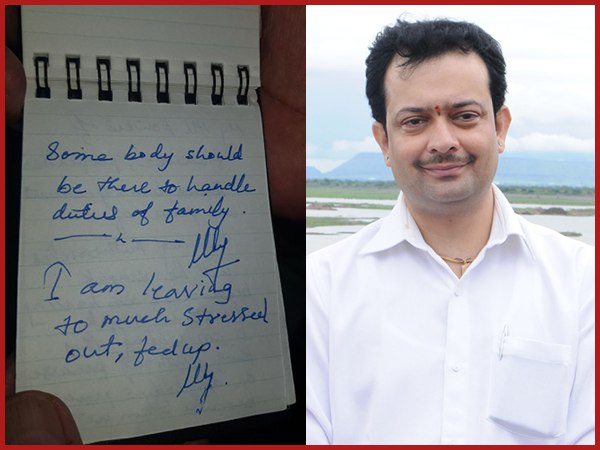 Some body should
be there to handle
duties of family.
I am leaving
to much stressed
out, fedup.